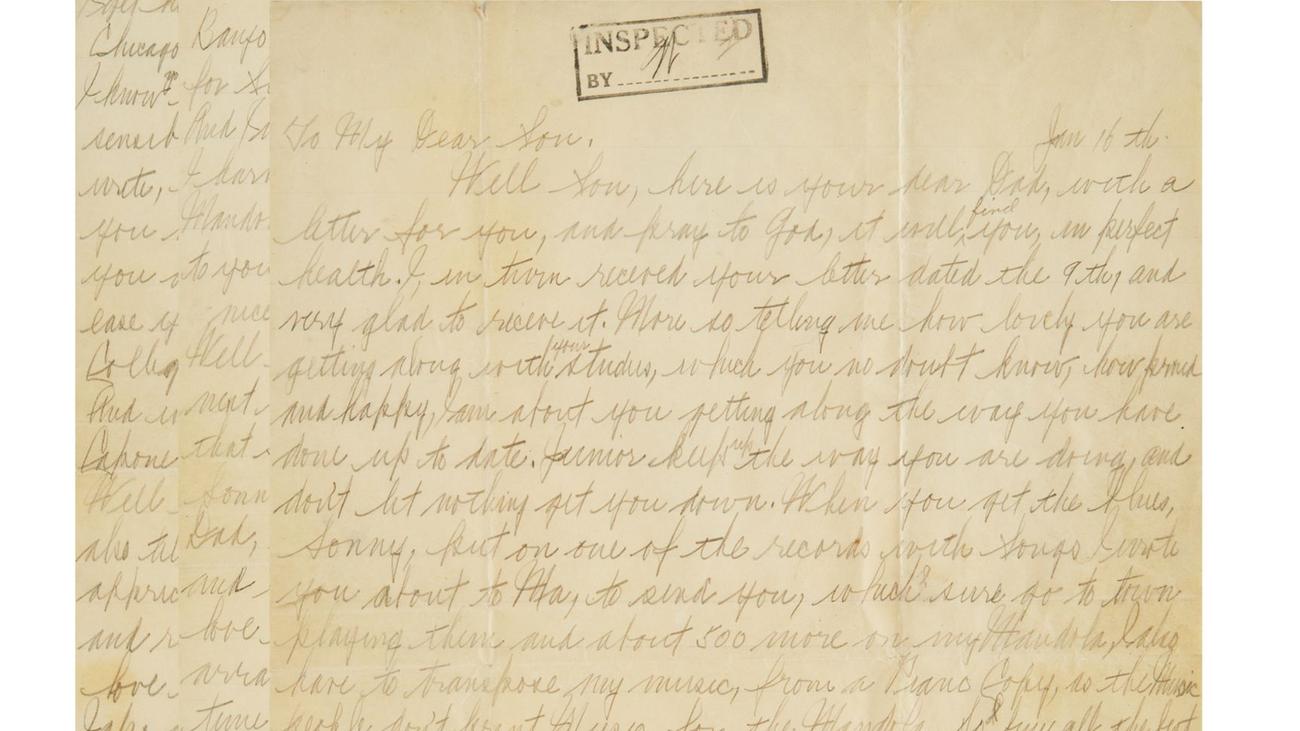 Chicago
I know
sensib
write,
you
you
ease if
Colleg
And
Capone
Well
also tel
apprec
and r
love
Banjo
for
And
I have
Mando
to you
nice
Well
next
that
Sonn
Dad,
and
love
arra
time
INSPECTED
BY
To My Dear Son. Jan 16 th.
Well Son, here is your dear Dad, with a
letter for you, and pray to God, it will find you, in perfect
health. I, in turn receved your letter dated the 9th, and
very glad to receve it. More so telling me how lovely you are
getting along with your studies, which you no doubt know, how proud
and happy, I am about you getting along the way you have
done up to date. Junior keep up the way you are doing, and
don't let nothing get you down. When you get the blues,
Sonny, put on one of the records with songs I wrote
you about to Ma, to send you, which I sure go to town
playing them and about 500 more on my Mandola, I also
have to transpose my music, from a Piano Copy, as the Music
people don't print Music for the Mandola, all the best